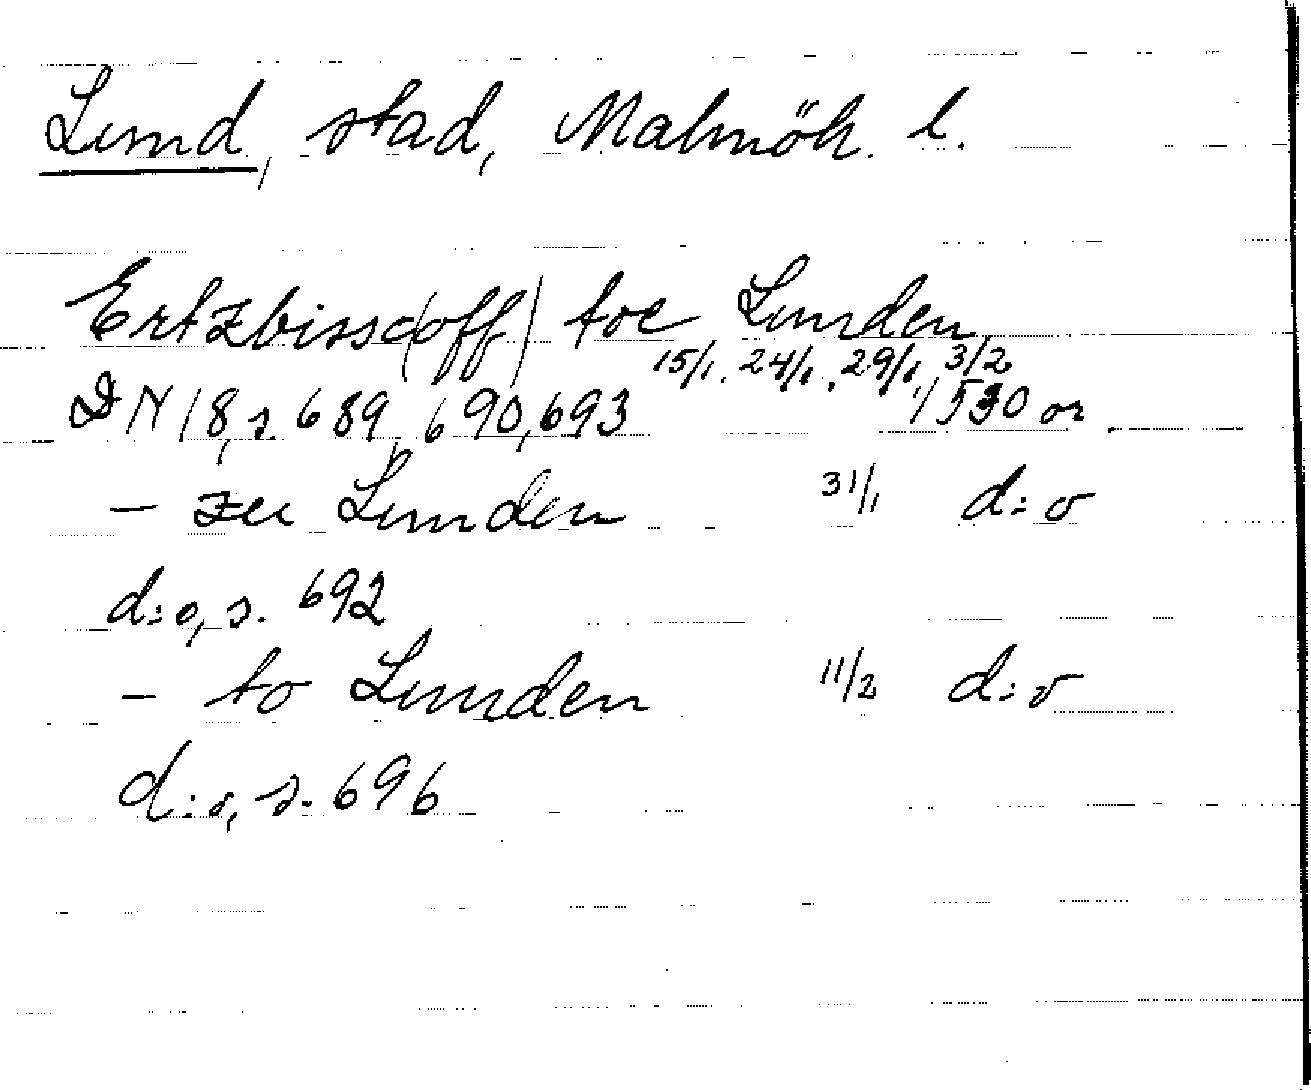 Lund, stad, Malmöh. l.
Ertzbissc(off) toe Lunden
15/1, 24/1, 29/1, 3/2
DN 18, s. 689, 690, 693 1530 or
– zu Lunden 31/1 d:o
d:o, s. 692
– to Lunden 11/2 d:o
d:o, s. 696